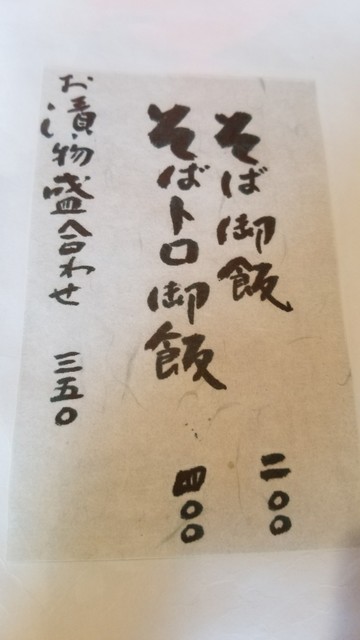 そば御飯 二〇〇
そばトロ御飯 四〇〇
お漬物盛合わせ 三五〇